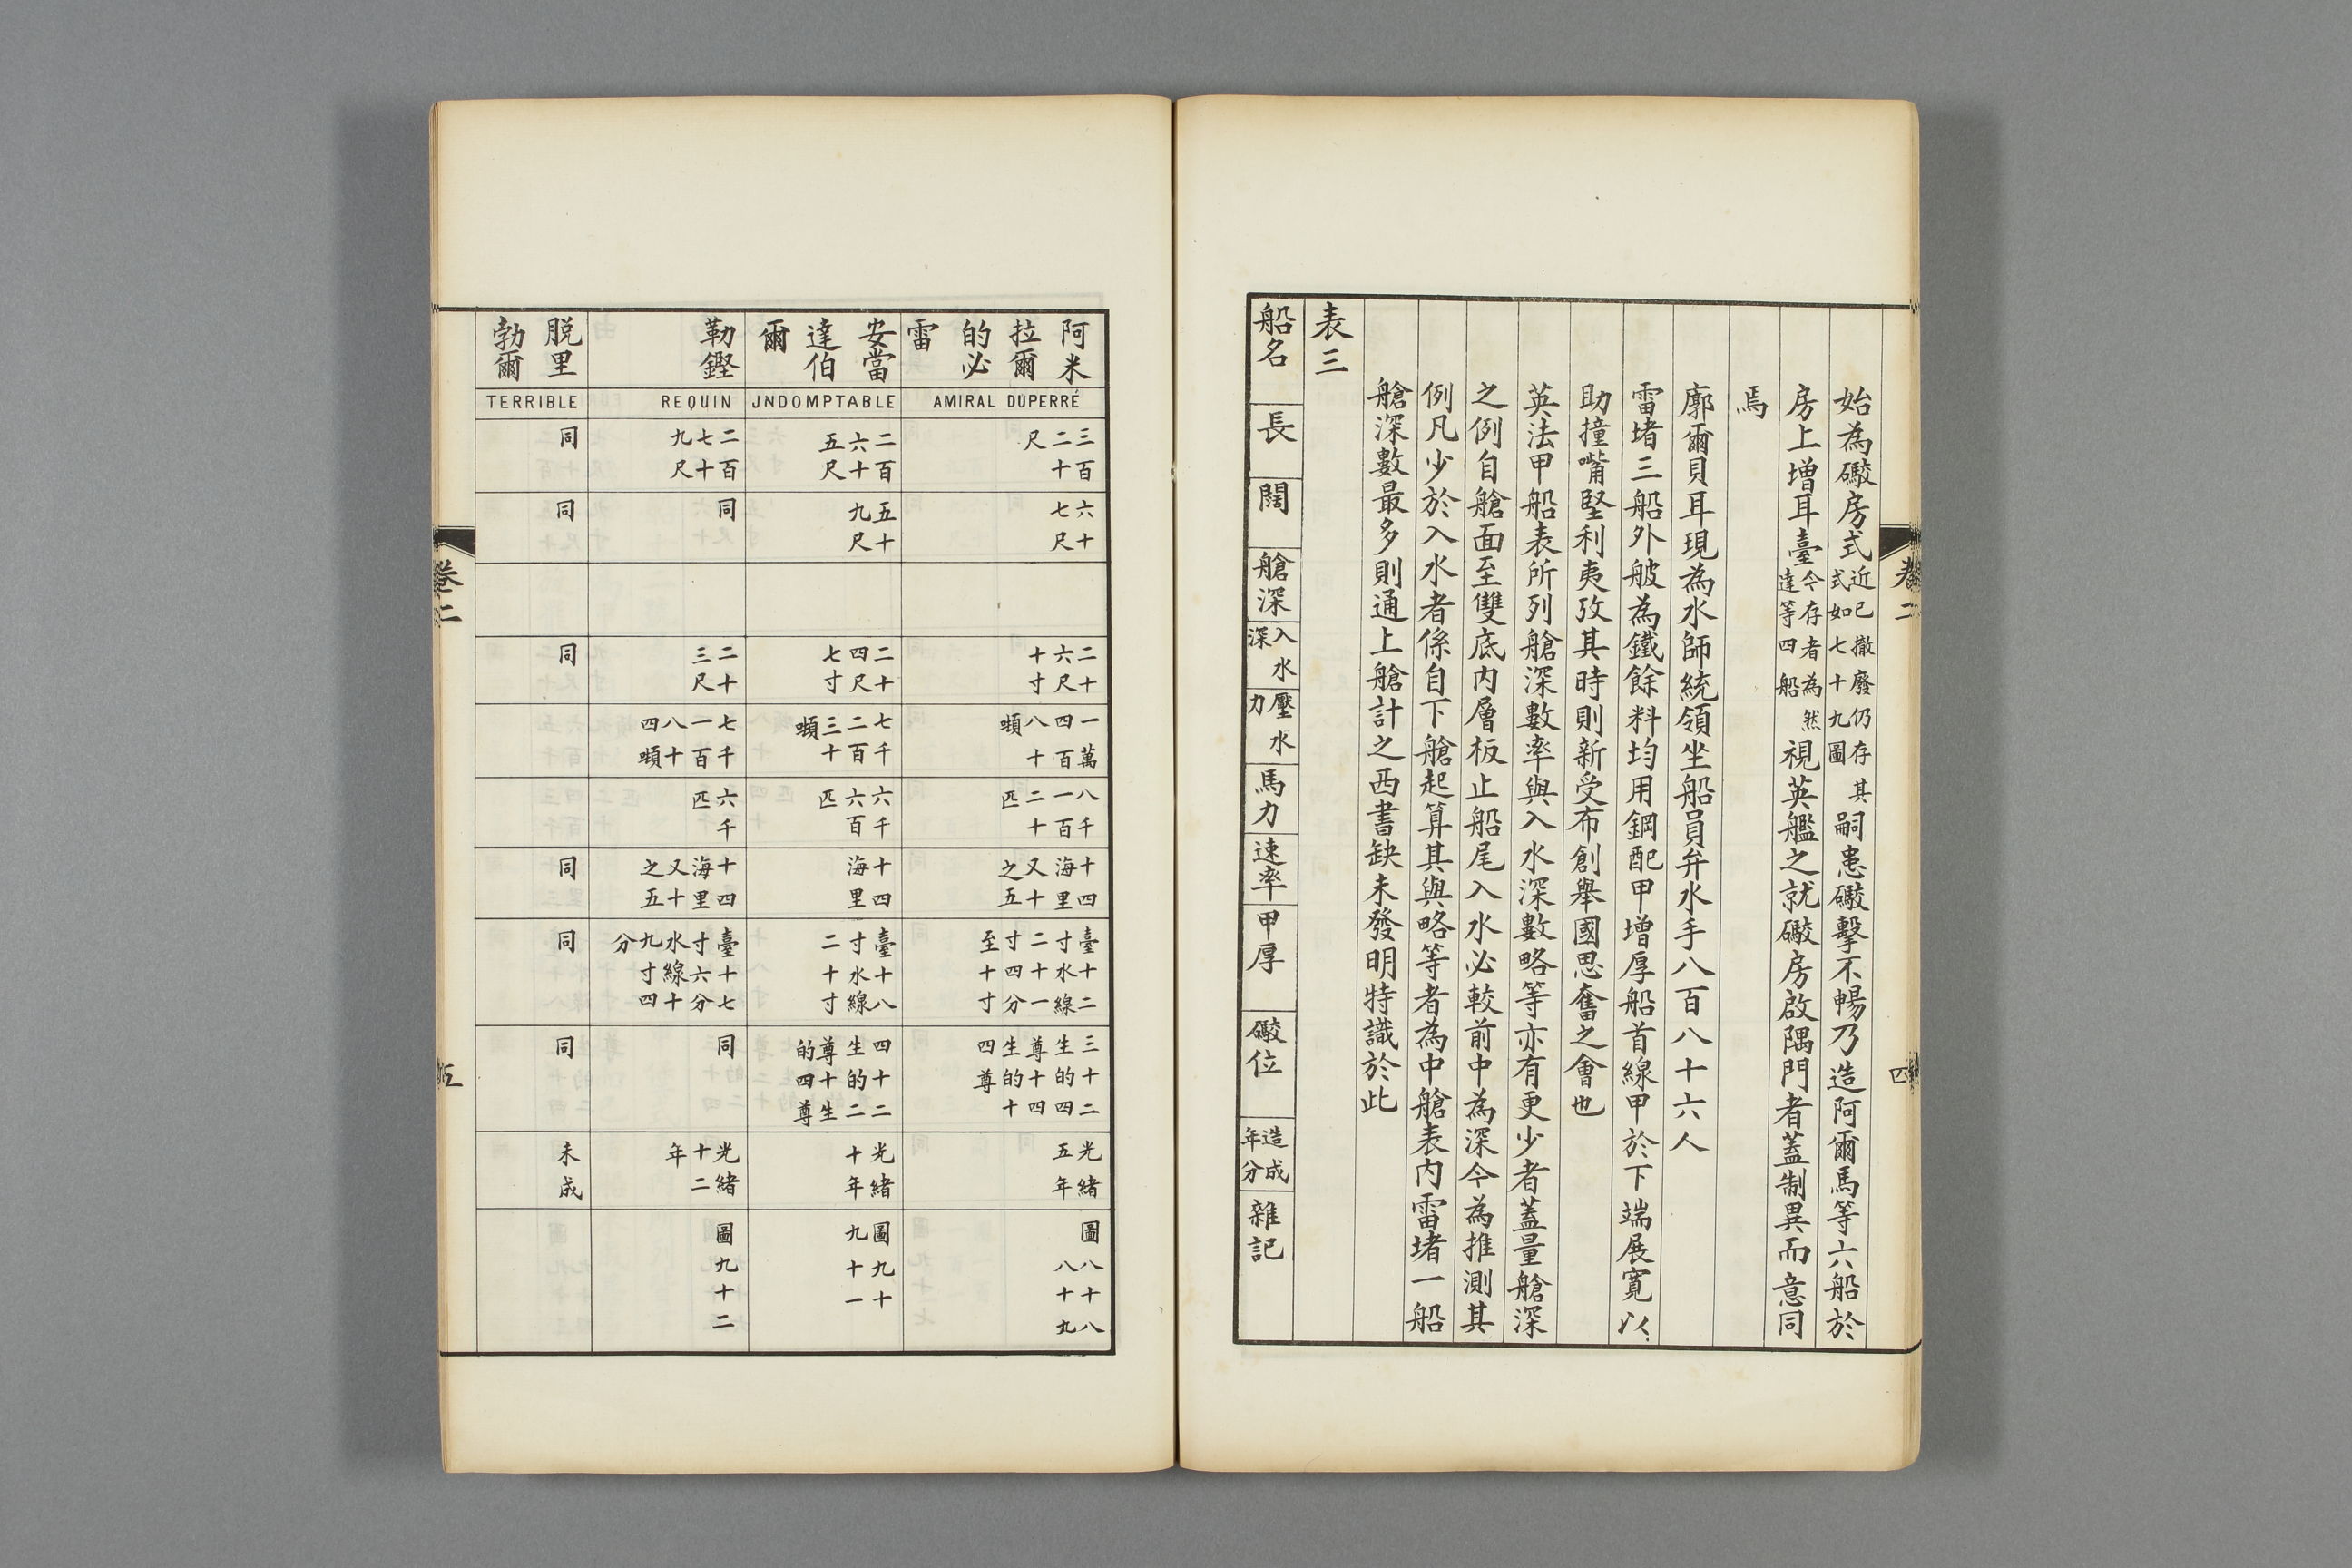 始為礮房式近已撤廢仍存其式如七十九圖嗣患礮擊不暢乃造阿爾馬等六船於
房上增耳臺今存者為然達等四船視英艦之就礮房啟隅門者蓋制異而意同
焉
廓爾貝耳現為水師統領坐船員弁水手八百八十六人
雷堵三船外皮為鐵餘料均用鋼配甲增厚船首線甲於下端展寬以
助撞嘴堅利夷攷其時則新受布創舉國思奮之會也
英法甲船表所列艙深數率與入水深數略等亦有更少者蓋量艙深
之例自艙面至雙底內層板止船尾入水必較前中為深今為推測其
例凡少於入水者係自下艙起算其與略等者為中艙表內雷堵一船
艙深數最多則通上艙計之西書缺未發明特識於此
表三
船名
長
闊
艙深
入水深
壓水力
馬力
速率
甲厚
礮位
造成年分
雜記
卷二
四
阿米拉爾的必雷
AMIRAL DUPERRÉ
三百二十尺
六十七尺
二十六尺十寸
一萬四百八十噸
八千一百二十匹
十四海里又十之五
臺十二寸水線二十一寸四分至十寸
三十二生的四尊十四生的十四尊
光緒五年
圖八十八八十九
安當達伯爾
JNDOMPTABLE
二百六十五尺
五十九尺
二十四尺七寸
七千二百三十噸
六千六百匹
十四海里
臺十八寸水線二十寸
四十二生的二尊十生的四尊
光緒十年
圖九十九十一
勒鏗
REQUIN
二百七十九尺
同
二十三尺
七千一百八十四噸
六千匹
十四海里又十之五
臺十七寸六分水線十九寸四分
同
光緒十二年
圖九十二
脫里勃爾
TERRIBLE
同
同
同
同
同
同
未成
卷二
五